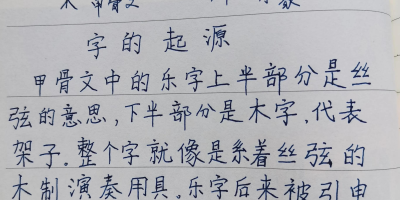 字的起源
甲骨文中的乐字上半部分是丝
弦的意思,下半部分是木字,代表
架子。整个字就像是系着丝弦的
木制演奏用具。乐字后来被引申